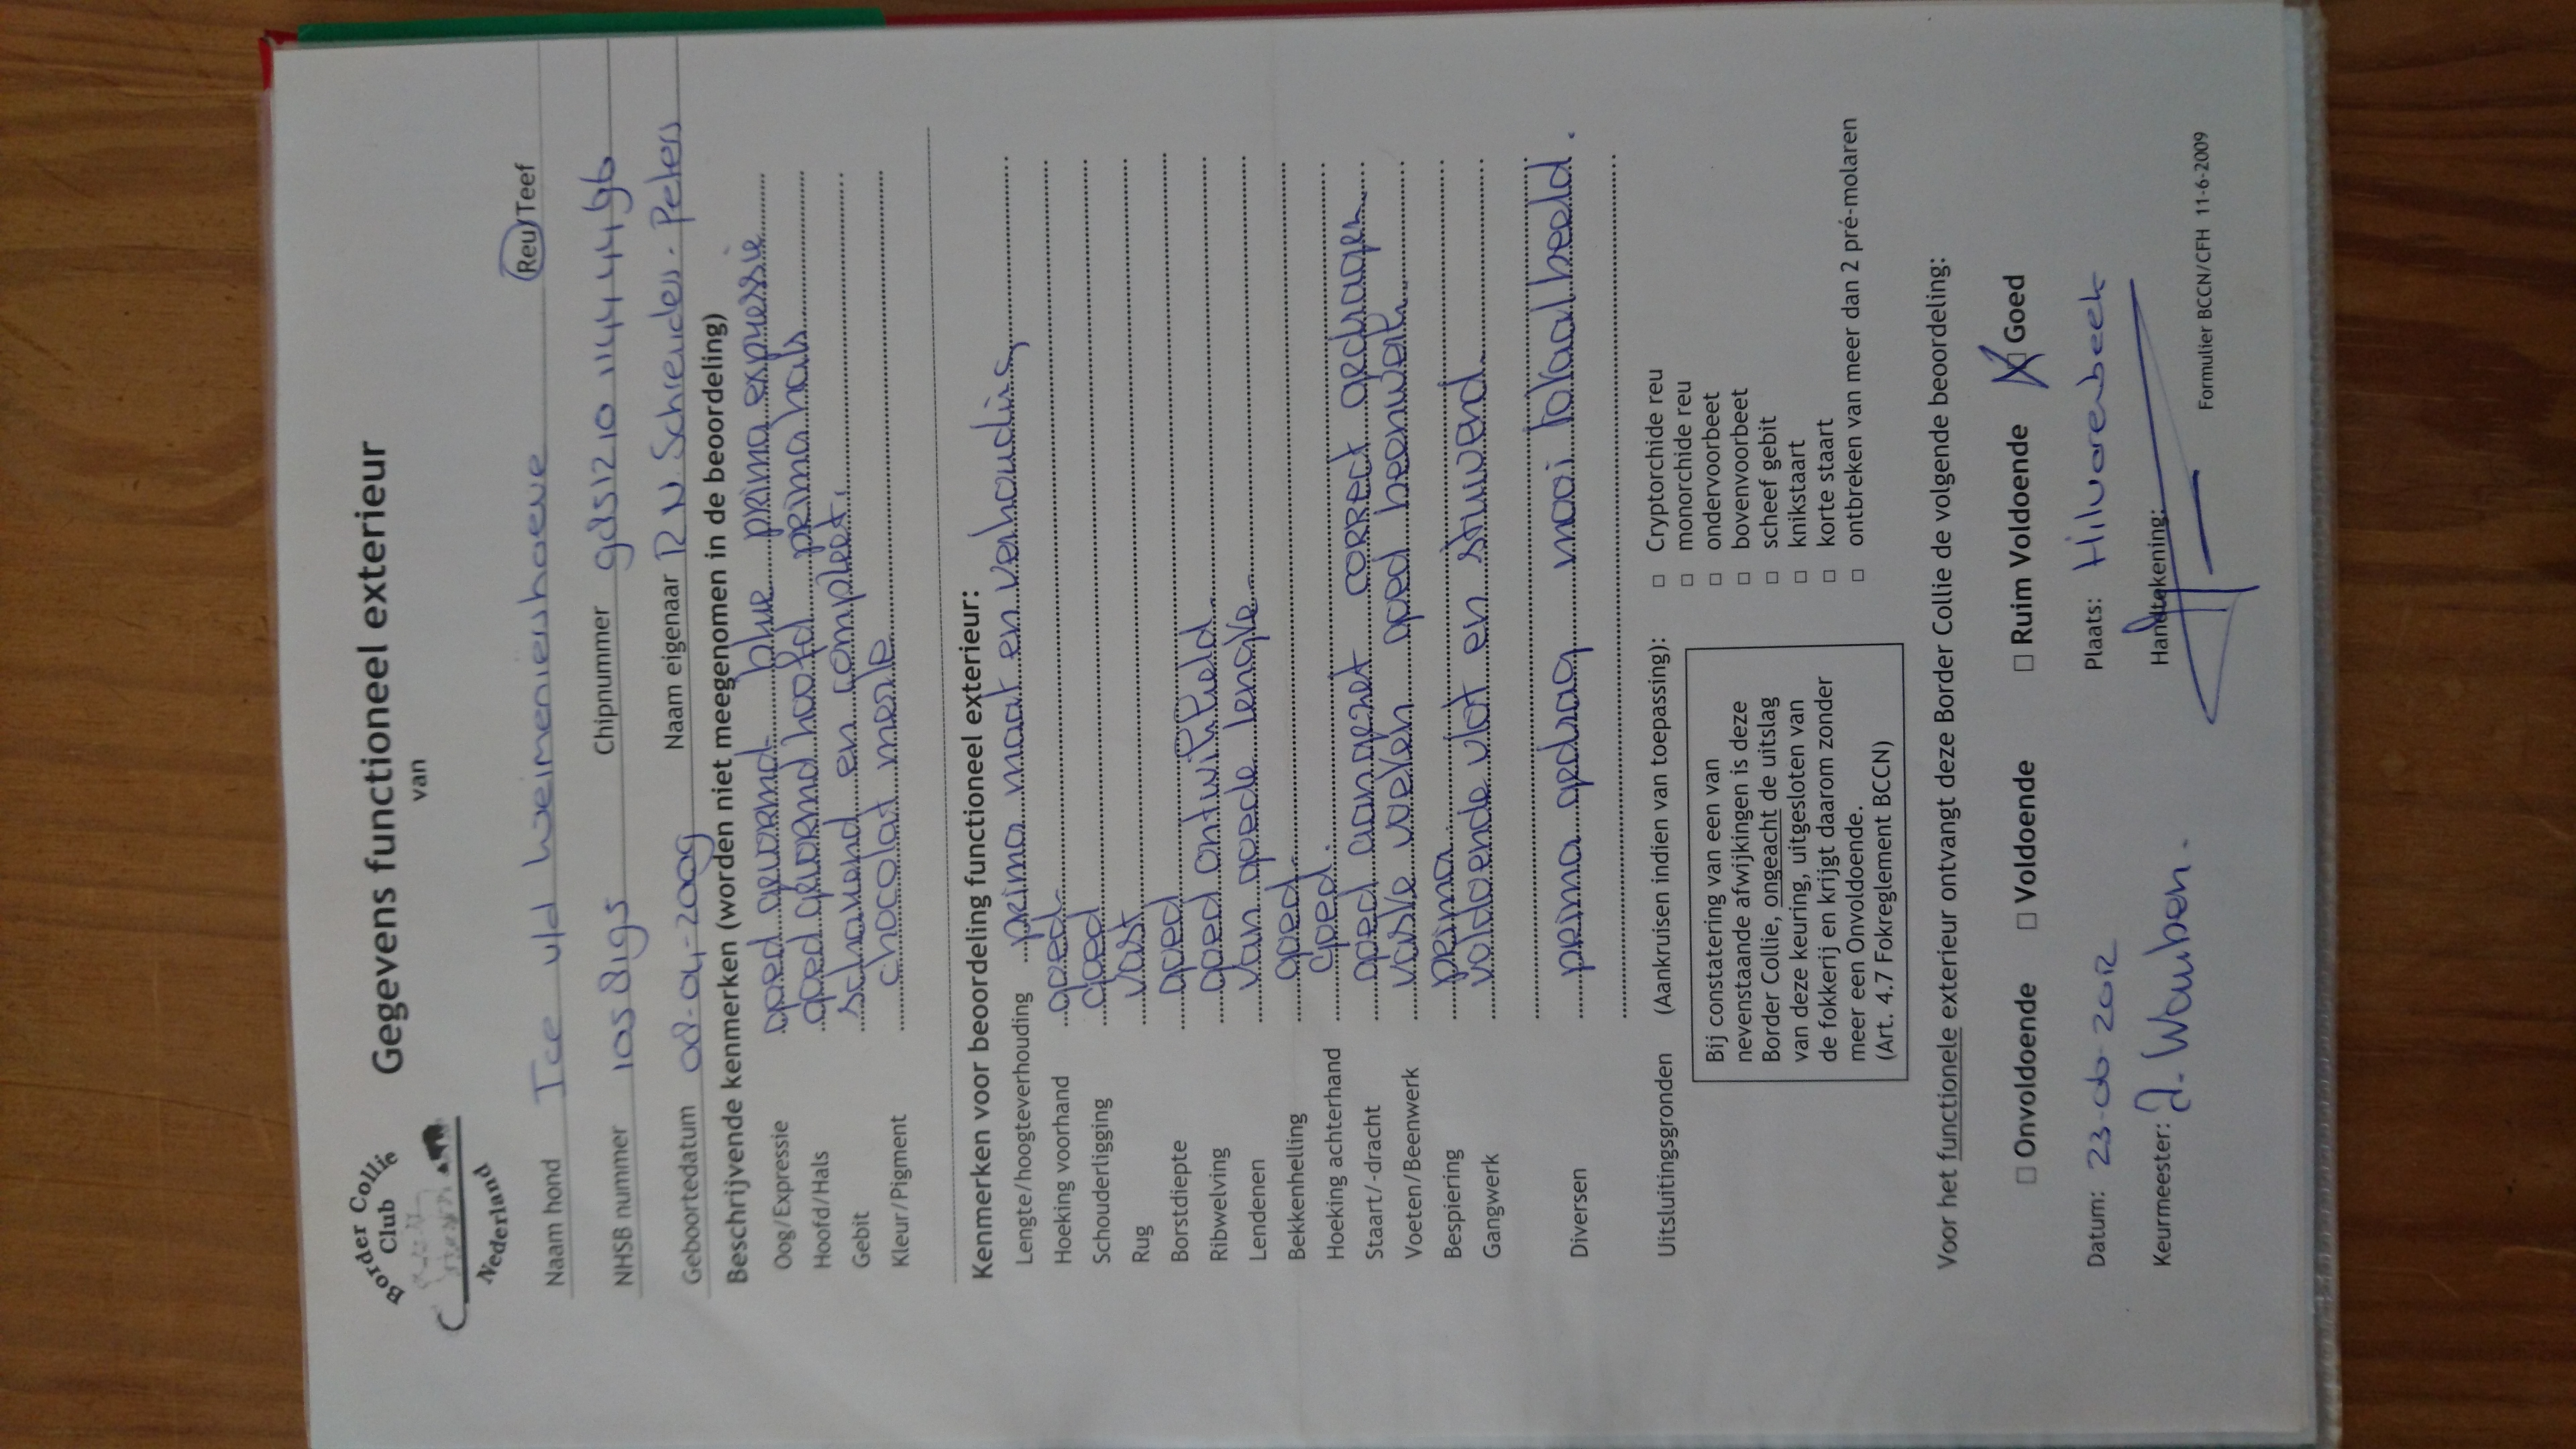 Border Collie
Club
Nederland
Gegevens functioneel exterieur
van
Naam hond Ice v/d Weimeniershoeve Reu/Teef
NHSB nummer Chipnummer
Geboortedatum 08-04-2009 Naam eigenaar R N Schreuders-Peters
Beschrijvende kenmerken (worden niet meegenomen in de beoordeling)
Oog/Expressie goed gevormd. blue prima expressie
Hoofd/Hals goed gevormd hoofd prima hals
Gebit scharend en compleet.
Kleur/Pigment chocolat merle
Kenmerken voor beoordeling functioneel exterieur:
Lengte/hoogteverhouding prima maat en verhouding
Hoeking voorhand goed.
Schouderligging goed
Rug vast
Borstdiepte goed
Ribwelving goed ontwikkeld.
Lendenen van goede lengte.
Bekkenhelling goed.
Hoeking achterhand goed.
Staart/-dracht goed aangezet correct gedragen.
Voeten/Beenwerk vaste voeten goed beenwerk.
Bespiering prima.
Gangwerk voldoende vlot en stuwend.
Diversen prima gedrag mooi totaalbeeld.
Uitsluitingsgronden (Aankruisen indien van toepassing):
□ Cryptorchide reu
□ monorchide reu
□ ondervoorbeet
□ bovenvoorbeet
□ scheef gebit
□ knikstaart
□ korte staart
□ ontbreken van meer dan 2 pré-molaren
Bij constatering van een van
nevenstaande afwijkingen is deze
Border Collie, ongeacht de uitslag
van deze keuring, uitgesloten van
de fokkerij en krijgt daarom zonder
meer een Onvoldoende.
(Art. 4.7 Fokreglement BCCN)
Voor het functionele exterieur ontvangt deze Border Collie de volgende beoordeling:
□ Onvoldoende □ Voldoende □ Ruim Voldoende ☒ Goed
Datum: 23-06-2012 Plaats: Hilvarenbeek
Keurmeester: J. Wauben. Handtekening:
Formulier BCCN/CFH 11-6-2009